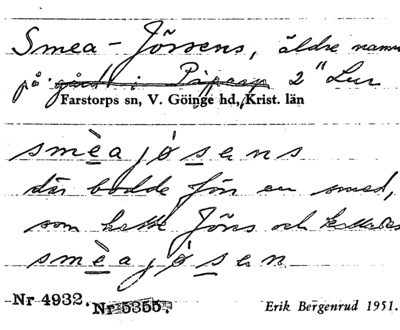 Smea-Jönsens, äldre namn
på gård i Påarp 2 "Lur
Farstorps sn, V. Göinge hd, Krist. län
smèajösens
där bodde förr en smed,
som hette Jöns och kallades
smèajösen
Nr 4932. Nr 5355. Erik Bergenrud 1951.